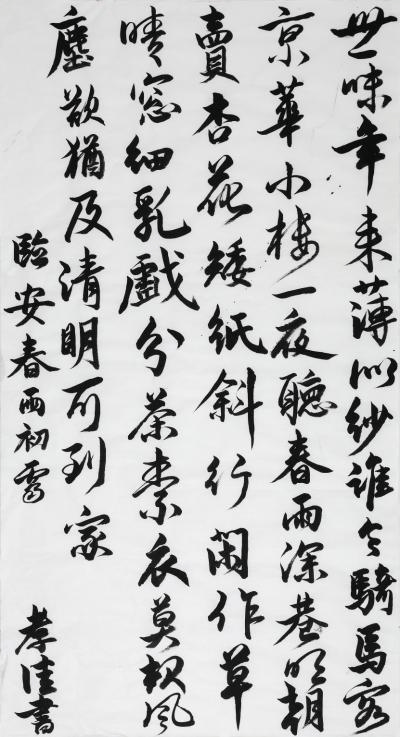 世味年来薄似紗誰令騎馬客
京華小樓一夜聽春雨深巷明朝
賣杏花矮紙斜行閑作草
晴窓細乳戲分茶素衣莫起風
塵歎猶及清明可到家
臨安春雨初霽
孝佳書